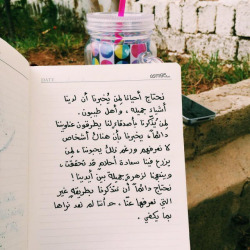 نحتاج أحيانا لمن يُخبرنا أن لدينا
أشياء جميله ، وأهل طيبون.
لمن يُذكّرنا بأصدقاء لنا يطرقون عناويننا
دائماً، يخبرنا بأن هناك أشخاص
لا نعرفهم ورغم ذلك يحبوننا، لمن
يزرع فينا سعادة أحلام قد تحققت،
وينبهنا لزهرةٍ جميلة بين أيدينا!
نحتاج دائماً أن تتذكرنا بطريقةٍ غير
التي نعرفها عنّا، لأننا لم نعد نراها
بما يكفي.